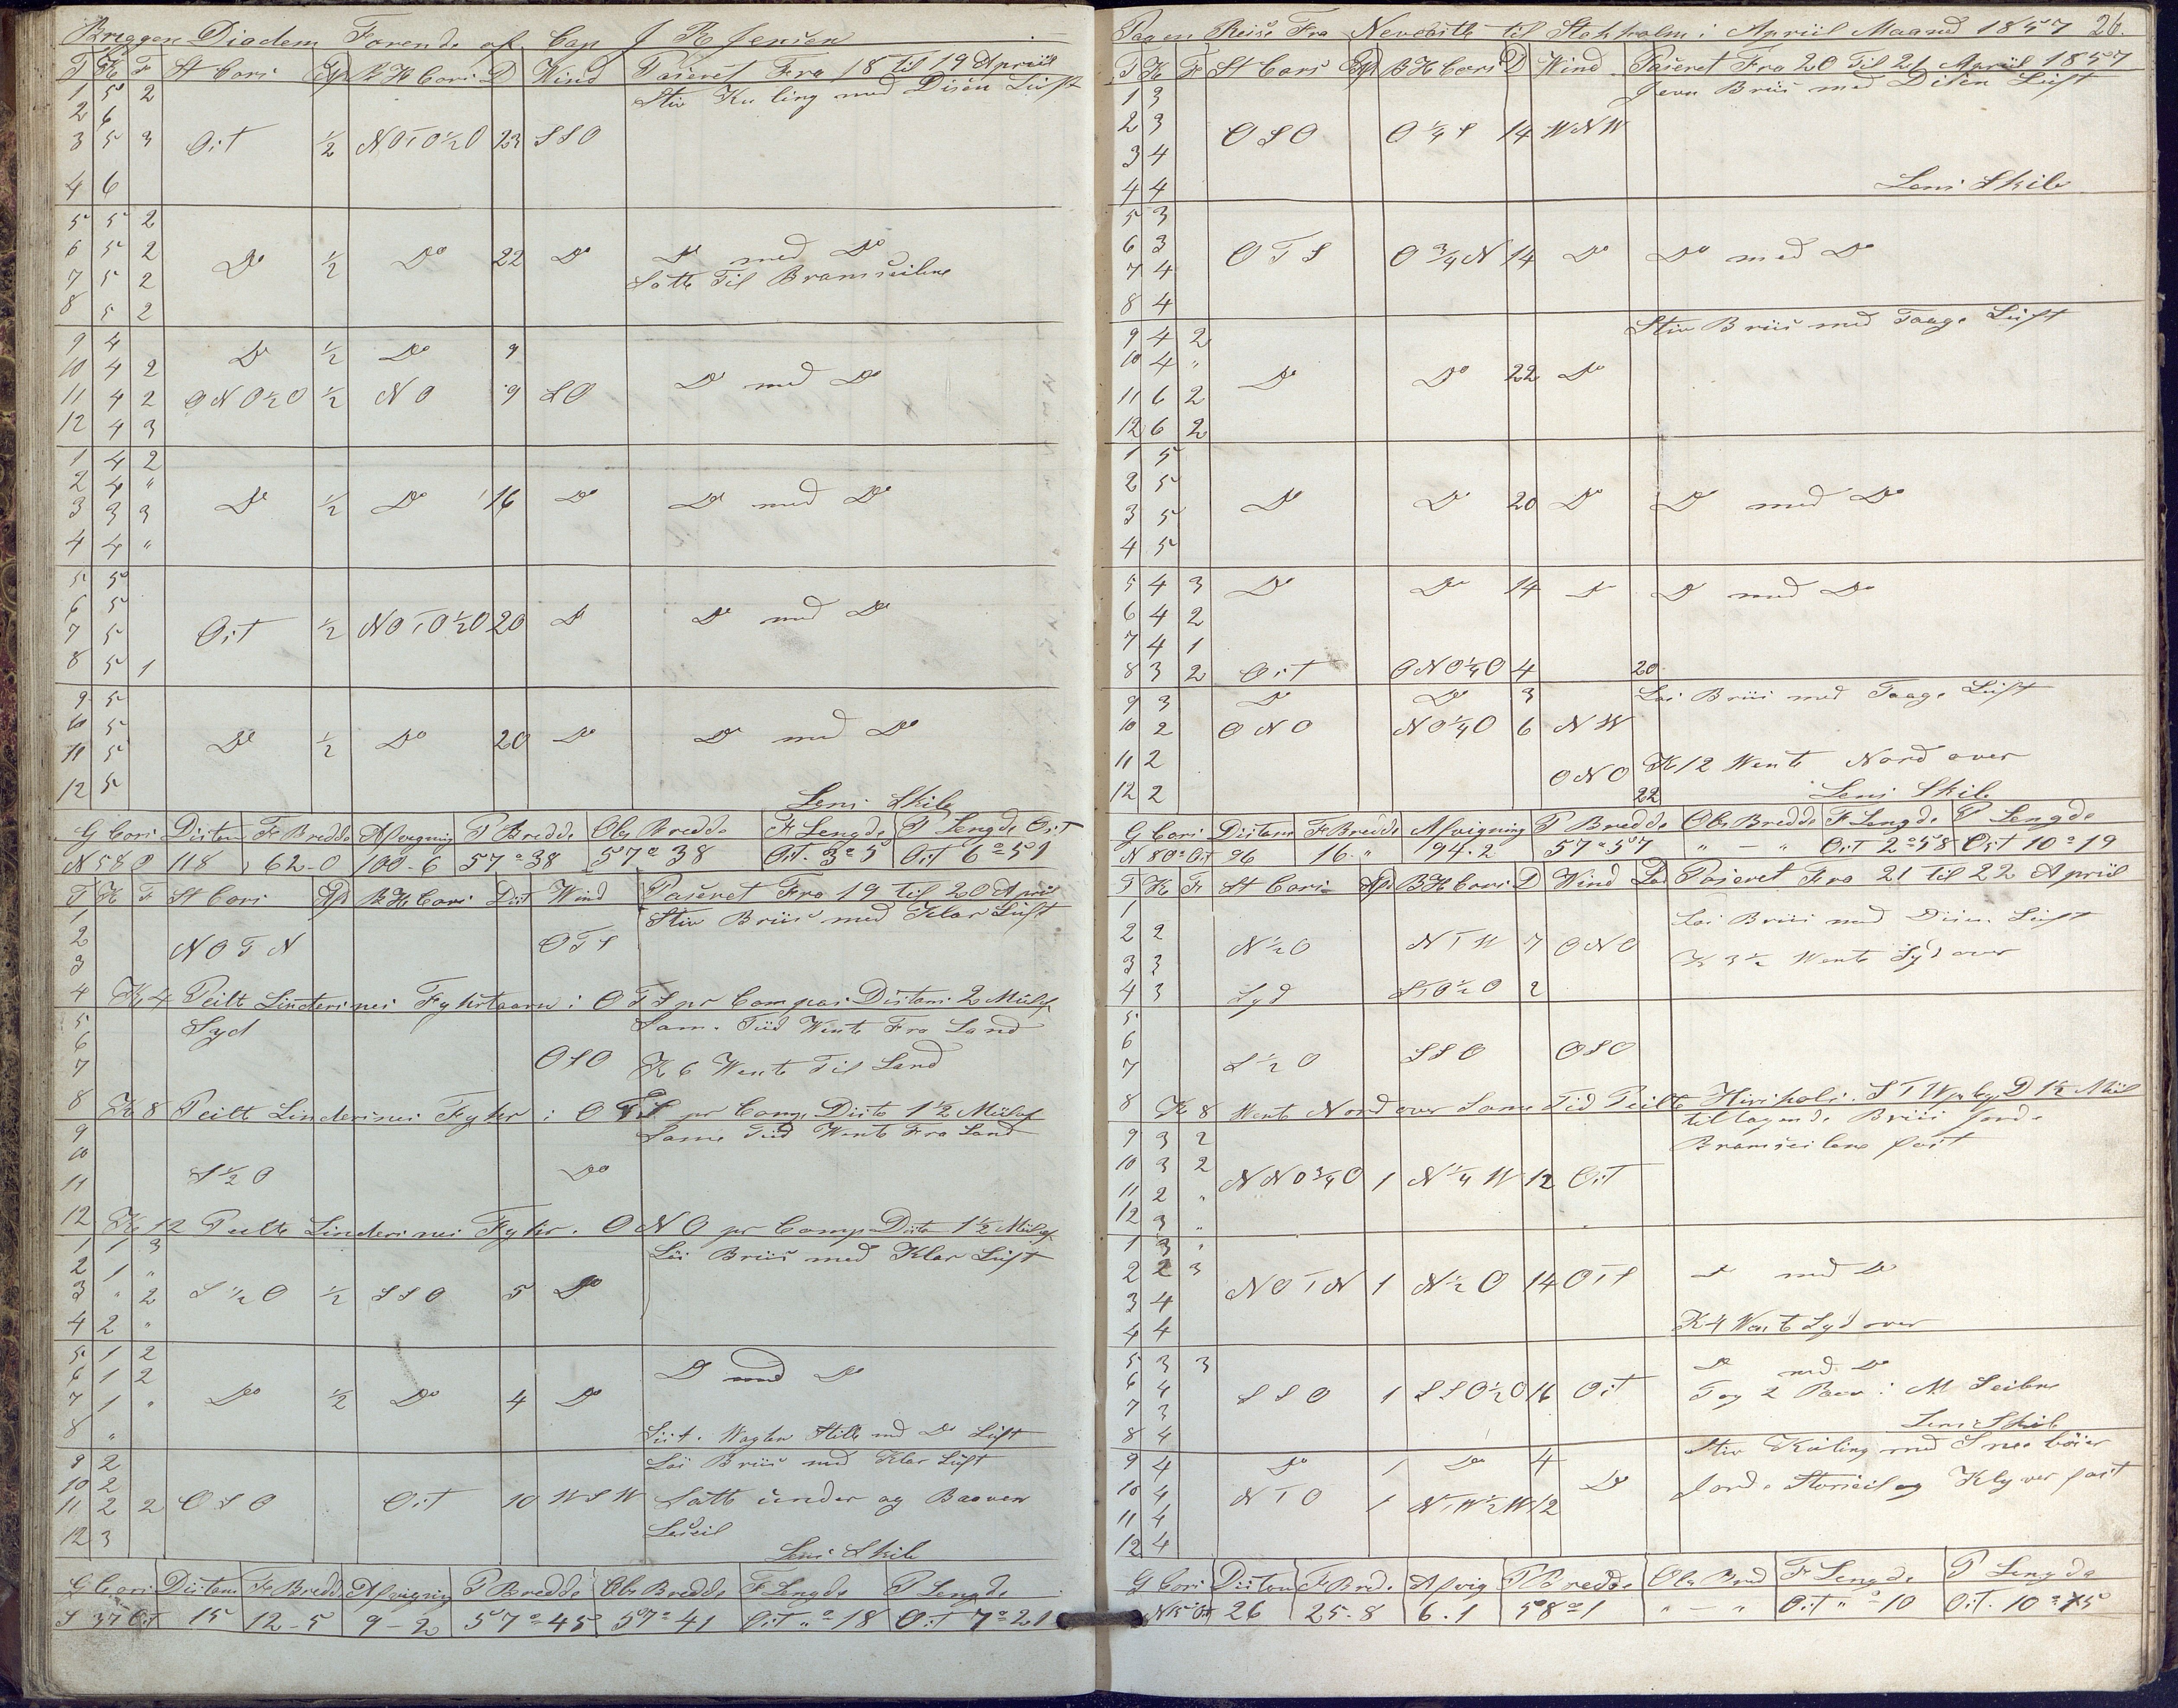 Briggen Diadem Førende af Cap J R Jensen
T K F St Cors Afd B H Cors D Wind Paseret Fra 18 til 19 Apriil
1 5 2 Stiv Kuling med Disen Luft
2 6
3 5 3 Ost ½ NOTO½O 23 SSO
4 6
5 5 2
6 5 2 Do ½ Do 22 Do Do med Do
7 5 2 Satte Til Bramseilene
8 5 2
9 4 Do ½ Do 9
10 4 2 Do med Do
11 4 2 ONO½O ½ NO 9 SO
12 4 3
1 4 2
2 4 "
3 3 3 Do ½ Do 16 Do Do med Do
4 4 "
5 5
6 5
7 5 Ost ½ NOTO½O 20 Do Do med Do
8 5 1
9 5
10 5
11 5 Do ½ Do 20 Do Do med Do
12 5 Lens Skib
G Cors Distans F Bredde Afvigning P Bredde Obs Bredde F Lengde P Lengde Ost
N 58 O 118 62-0 100-6 57°38 57°38 Ost. 3°5 Ost 6°51
T K F St Cors Afd B H Cors Dist Wind Paseret Fra 19 til 20 Apriil
1 Stiv Briis med Klar Luft
2 NOTN OTS
3
4 K 4 Peilt Lindersnes Fyhrtaarn i OTS pr Compas Distans 2 Miil af
5 Syd Sam. Tiid Wente Fra Land
6
7 OSO K 6 Wente Til Land
8 K 8 Peilt Lindersnes Fyhr i OTS pr Comp Dist 1½ Miil af
9 Same Tiid Wente Fra Land
10
11 S½O Do
12 K 12 Peilte Lindersnes Fyhr i ONO pr Comp Dista 1½ Miil af
1 1 3 Løi Briis med Klar Luft
2 1 "
3 " 2 S½O ½ SSO 5 Do
4 2 "
5 1 2
6 1 2 Do med Do
7 1 " Do ½ Do 4 Do
8 " Sist. Wagten Stille med Do Luft
9 2 Løi Briis med Klar Luft
10 2
11 2 2 OSO Ost 10 WSW Satte under og Baaven
12 3 Leseil
Lens Skib
G Cors Distans F Bredde Afvigning P Bredde Obs Bredde F Lengde P Lengde
S 37 Ost 15 12-5 9-2 57°45 57°41 Ost "°18 Ost 7°21
Paa en Reise Fra Newcastle til Stokholm i Apriil Maaned 1857 26.
T K F St Cors Afd B H Cors D Wind Paseret Fra 20 Til 21 Apriil 1857
1 3 Jevn Briis med Disen Luft
2 3 OSO O¼S 14 WNW
3 4
4 4 Lens Skib
5 3
6 3 OTS O¾N 14 Do Do med Do
7 4
8 4
Stiv Briis med Taage Luft
9 4 2
10 4 " Do Do 22 Do
11 6 2
12 6 2
1 5
2 5 Do Do 20 Do Do med Do
3 5
4 5
5 4 3 Do Do 14 Do Do med Do
6 4 2
7 4 1
8 3 2 Ost ONO¼O 4 20
9 3 Do Do 3 Løi Briis med Taage Luft
10 2 ONO NO¼O 6 NW
11 2 ONO K 12 Wente Nord over
12 2 22 Lens Skib
G Cors Distans F Bredde Afvigning P Bredde Obs Bredde F Lengde P Lengde
N 80° Ost 96 16." 94.2 57°57 " — " Ost 2°58 Ost 10°19
T K F St Cors Afd B H Cors D Wind Lod Paseret Fra 21 til 22 Apriil
1 Løi Briis med Disen Luft
2 2 N½O NTW 7 ONO
3 3 K 3½ Wente Syd over
4 3 Syd STO½O 2
5
6
7 S½O SSO OSO
8 K 8 Wente Nord over Same Tid Peilte Hirshols. STW pr Comp D 1½ Miil
tiltagende Briis gjorde
9 3 2 Bramseilene fast
10 3 2
11 2 " NNO¾O 1 N¼W 12 Ost
12 3 "
1 3 "
2 2 3 NOTN 1 N½O 14 OTS Do med Do
3 4
4 4 K 4 Wente Syd over
5 3 3 Do med Do
6 4 SSO 1 SSO½O 16 Ost Tog 2 Reev i M Seilene
7 3
8 4 Lens Skib
9 4 Do 1 Do 4 Stiv Kuling med Snee bøier
10 4 NTO 1 NTW½W 12 Do gjorde Storseil og Klyver fast
11 4
12 4
G Cors Distans F Brede Afvig P Bredde Obs Bred F Lengde P Lengde
N 15° Ost 26 25.8 6.1 58°1 " — " Ost "°10 Ost. 10°15